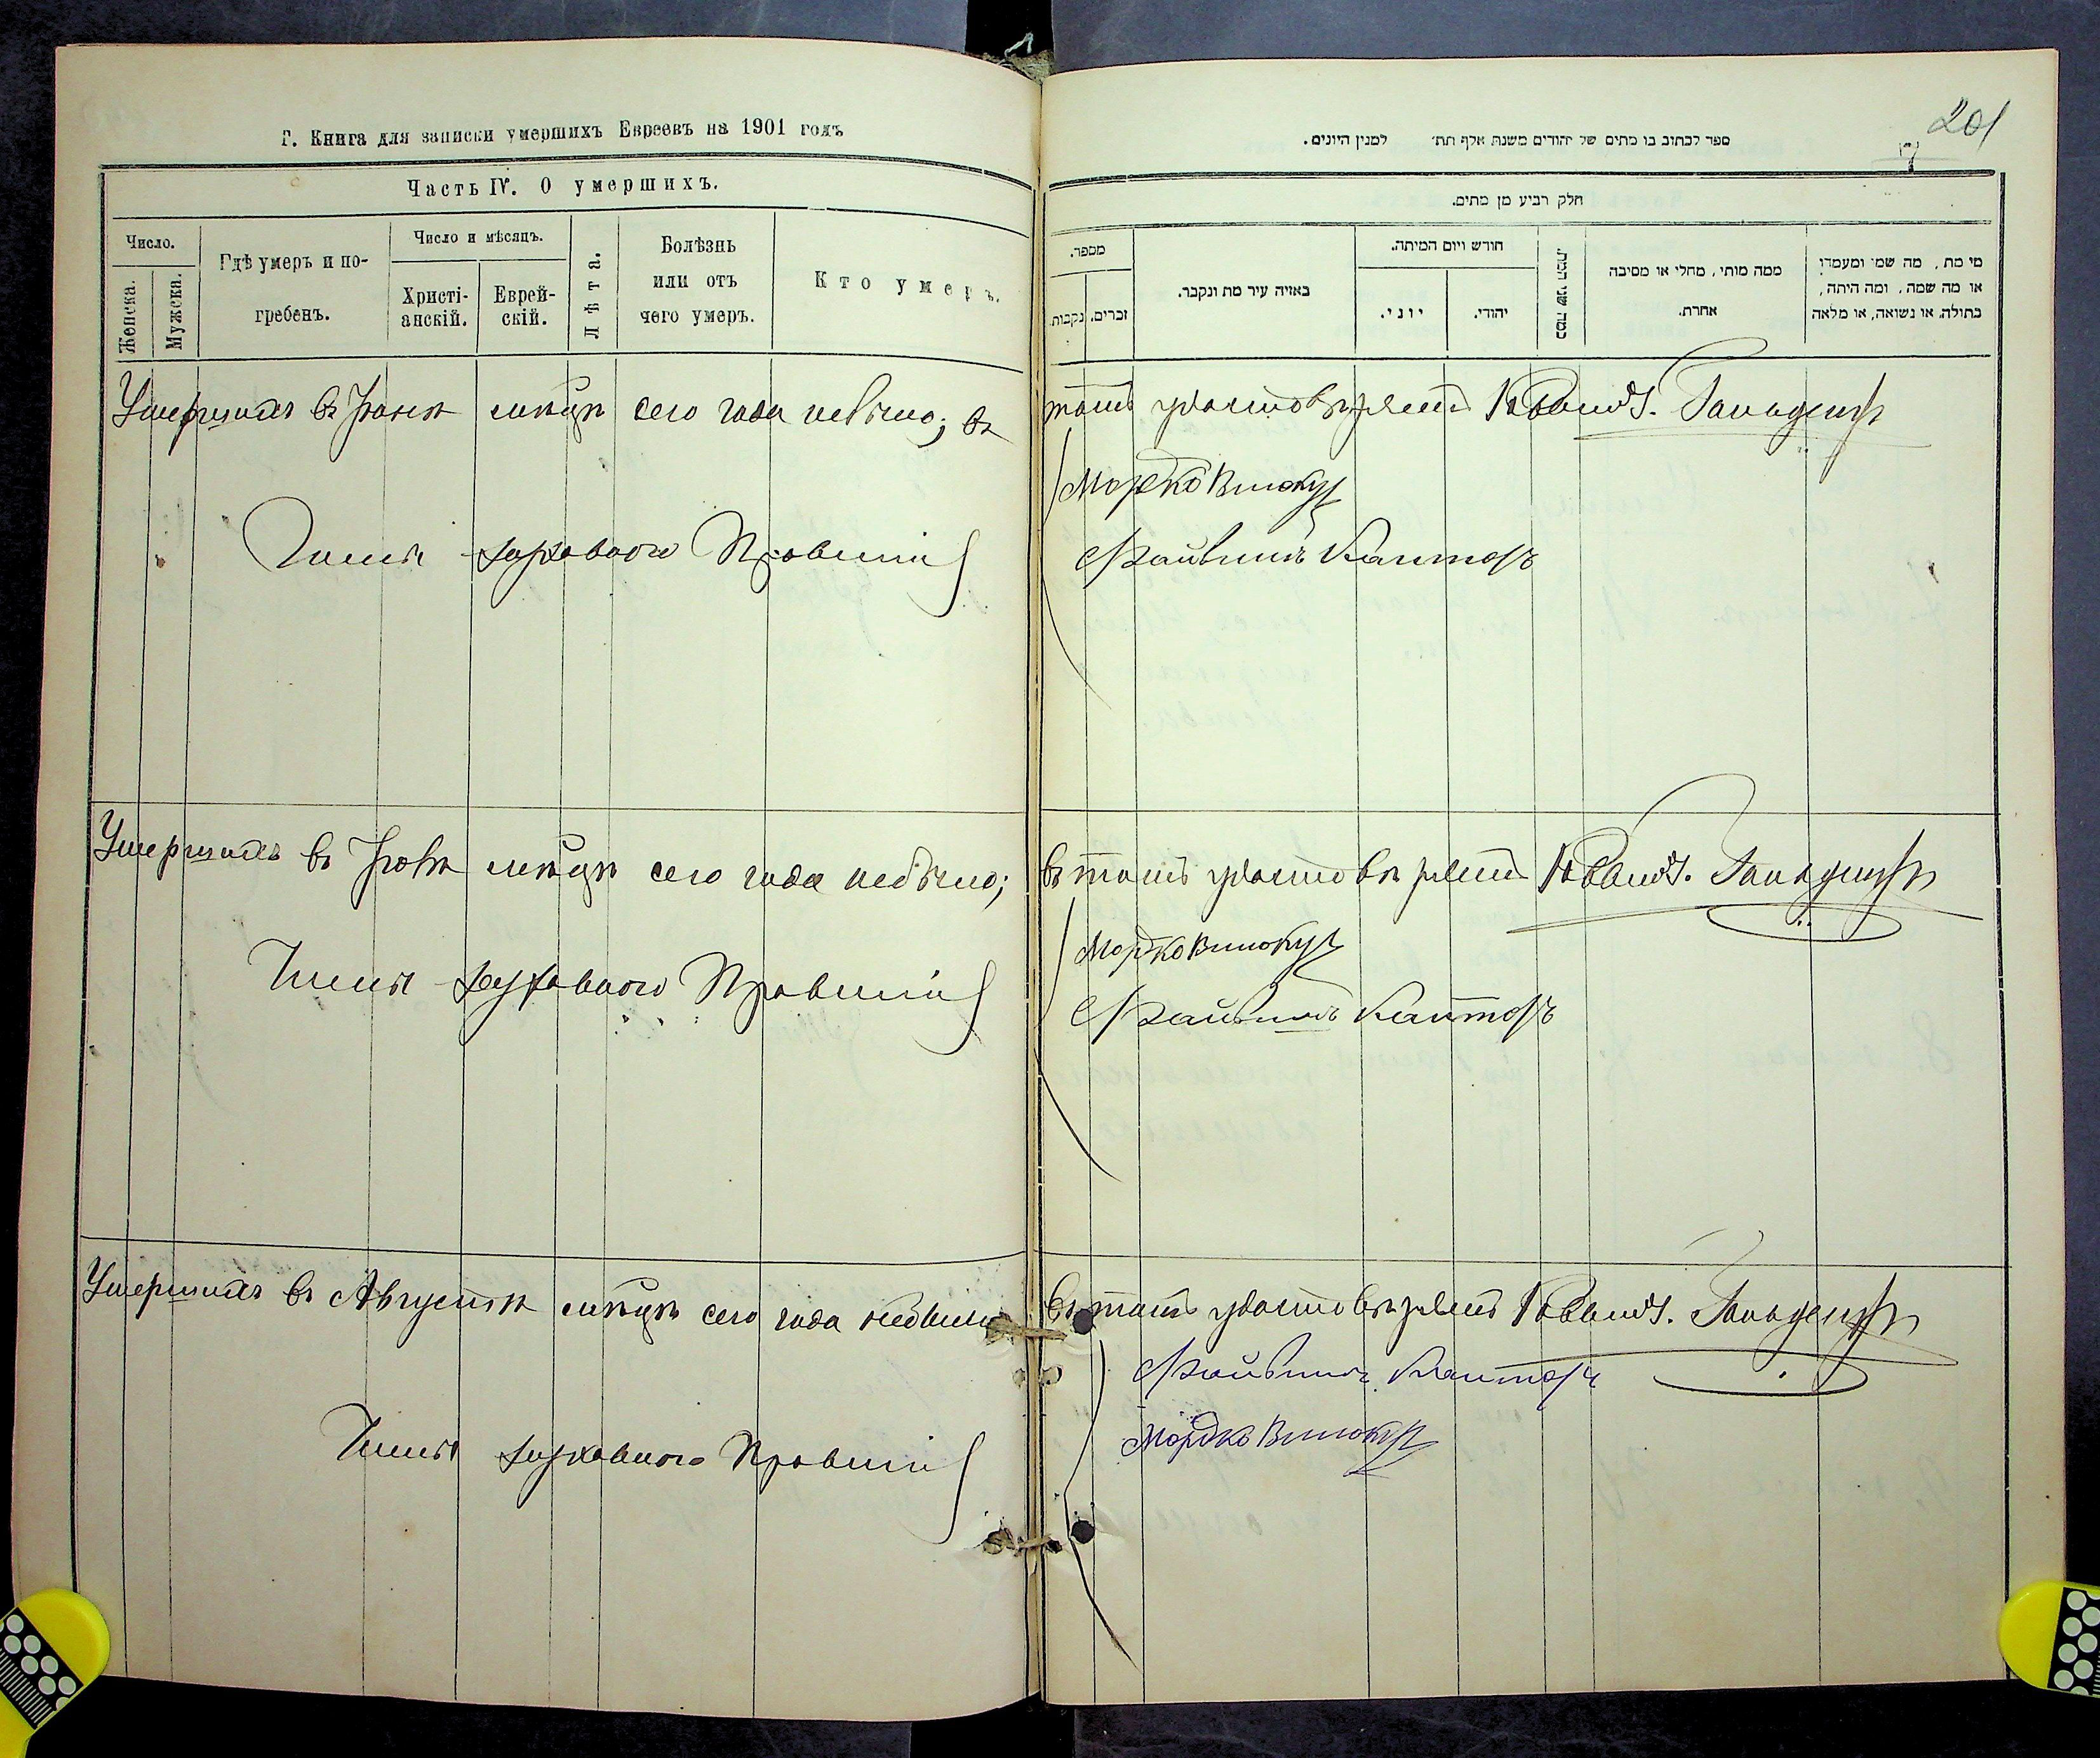 Г. Книга для записки умершихъ Евреевъ на 1901 годъ
Часть IV. О умершихъ.
Число.
Женска.
Мужска.
Гдѣ умеръ и по-
гребенъ.
Число и мѣсяцъ.
Христі-
анскій.
Еврей-
скій.
Лѣта.
Болѣзнь
или отъ
чего умеръ.
Кто умеръ.
Умершихъ въ Іюнѣ м-цѣ сего года небыло; въ
Члены духовного Правленія
Умершихъ въ Іюлѣ м-цѣ сего года небыло;
Члены духовного Правленія
Умершихъ въ Августѣ м-цѣ сего года небыло
Члены духовного Правленія
201
ספר לכתוב בו מתים של יהודים משנת אלף תת׳ למנין היונים.
חלק רביע מן מתים.
מספר.
נקבות.
זכרים.
באזיה עיר מת ונקבר.
חודש ויום המיתה.
יוני.
יהודי.
כמה שני המת.
ממה מותי, מחלי או מסיבה
אחרת.
מי מת, מה שמו ומעמדו
או מה שמה, ומה היתה,
בתולה, או נשואה, או מלאה
томъ удостовѣряетъ Раввинъ.
Мордко Винокуръ
Файвишъ Канторъ
въ томъ удостовѣряетъ Раввинъ.
Мордко Винокуръ
Файвишъ Канторъ
въ томъ удостовѣряетъ Раввинъ.
Файвишъ Канторъ
Мордко Винокуръ